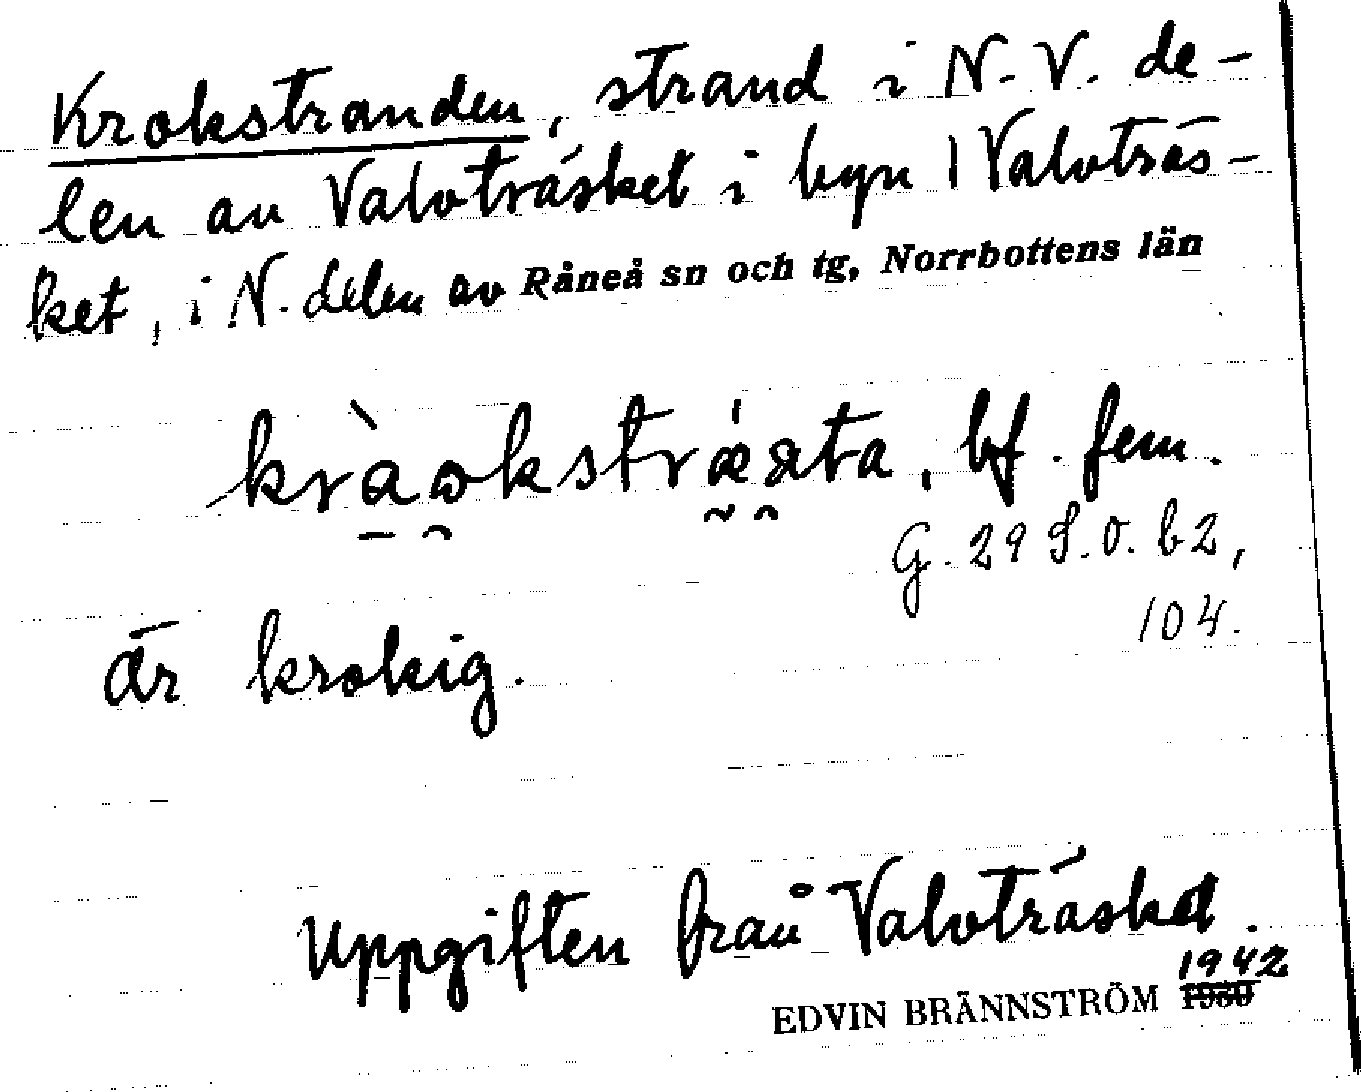 Krokstranden, strand i N.V. de-
len av Valvträsket i byn 1 Valvträs-
ket, i N. delen av Råneå sn och tg, Norrbottens län
bf. fem.
G. 29 S.O. b2,
104.
är krokig.
Uppgiften från Valvträsket.
EDVIN BRÄNNSTRÖM 1930 1942